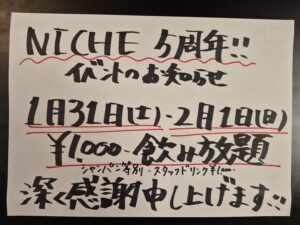 NICHE 5周年!!
イベントのお知らせ
1月31日(土)-2月1日(日)
¥1,000-飲み放題
シャンパン等別・スタッフドリンク¥1,000-
深く感謝申し上げます!!